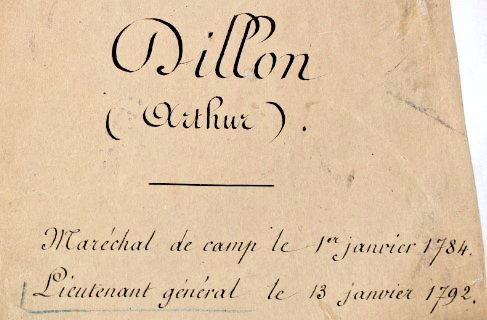 Dillon
(Arthur).
Maréchal de camp le 1er janvier 1784.
Lieutenant général le 13 janvier 1792.